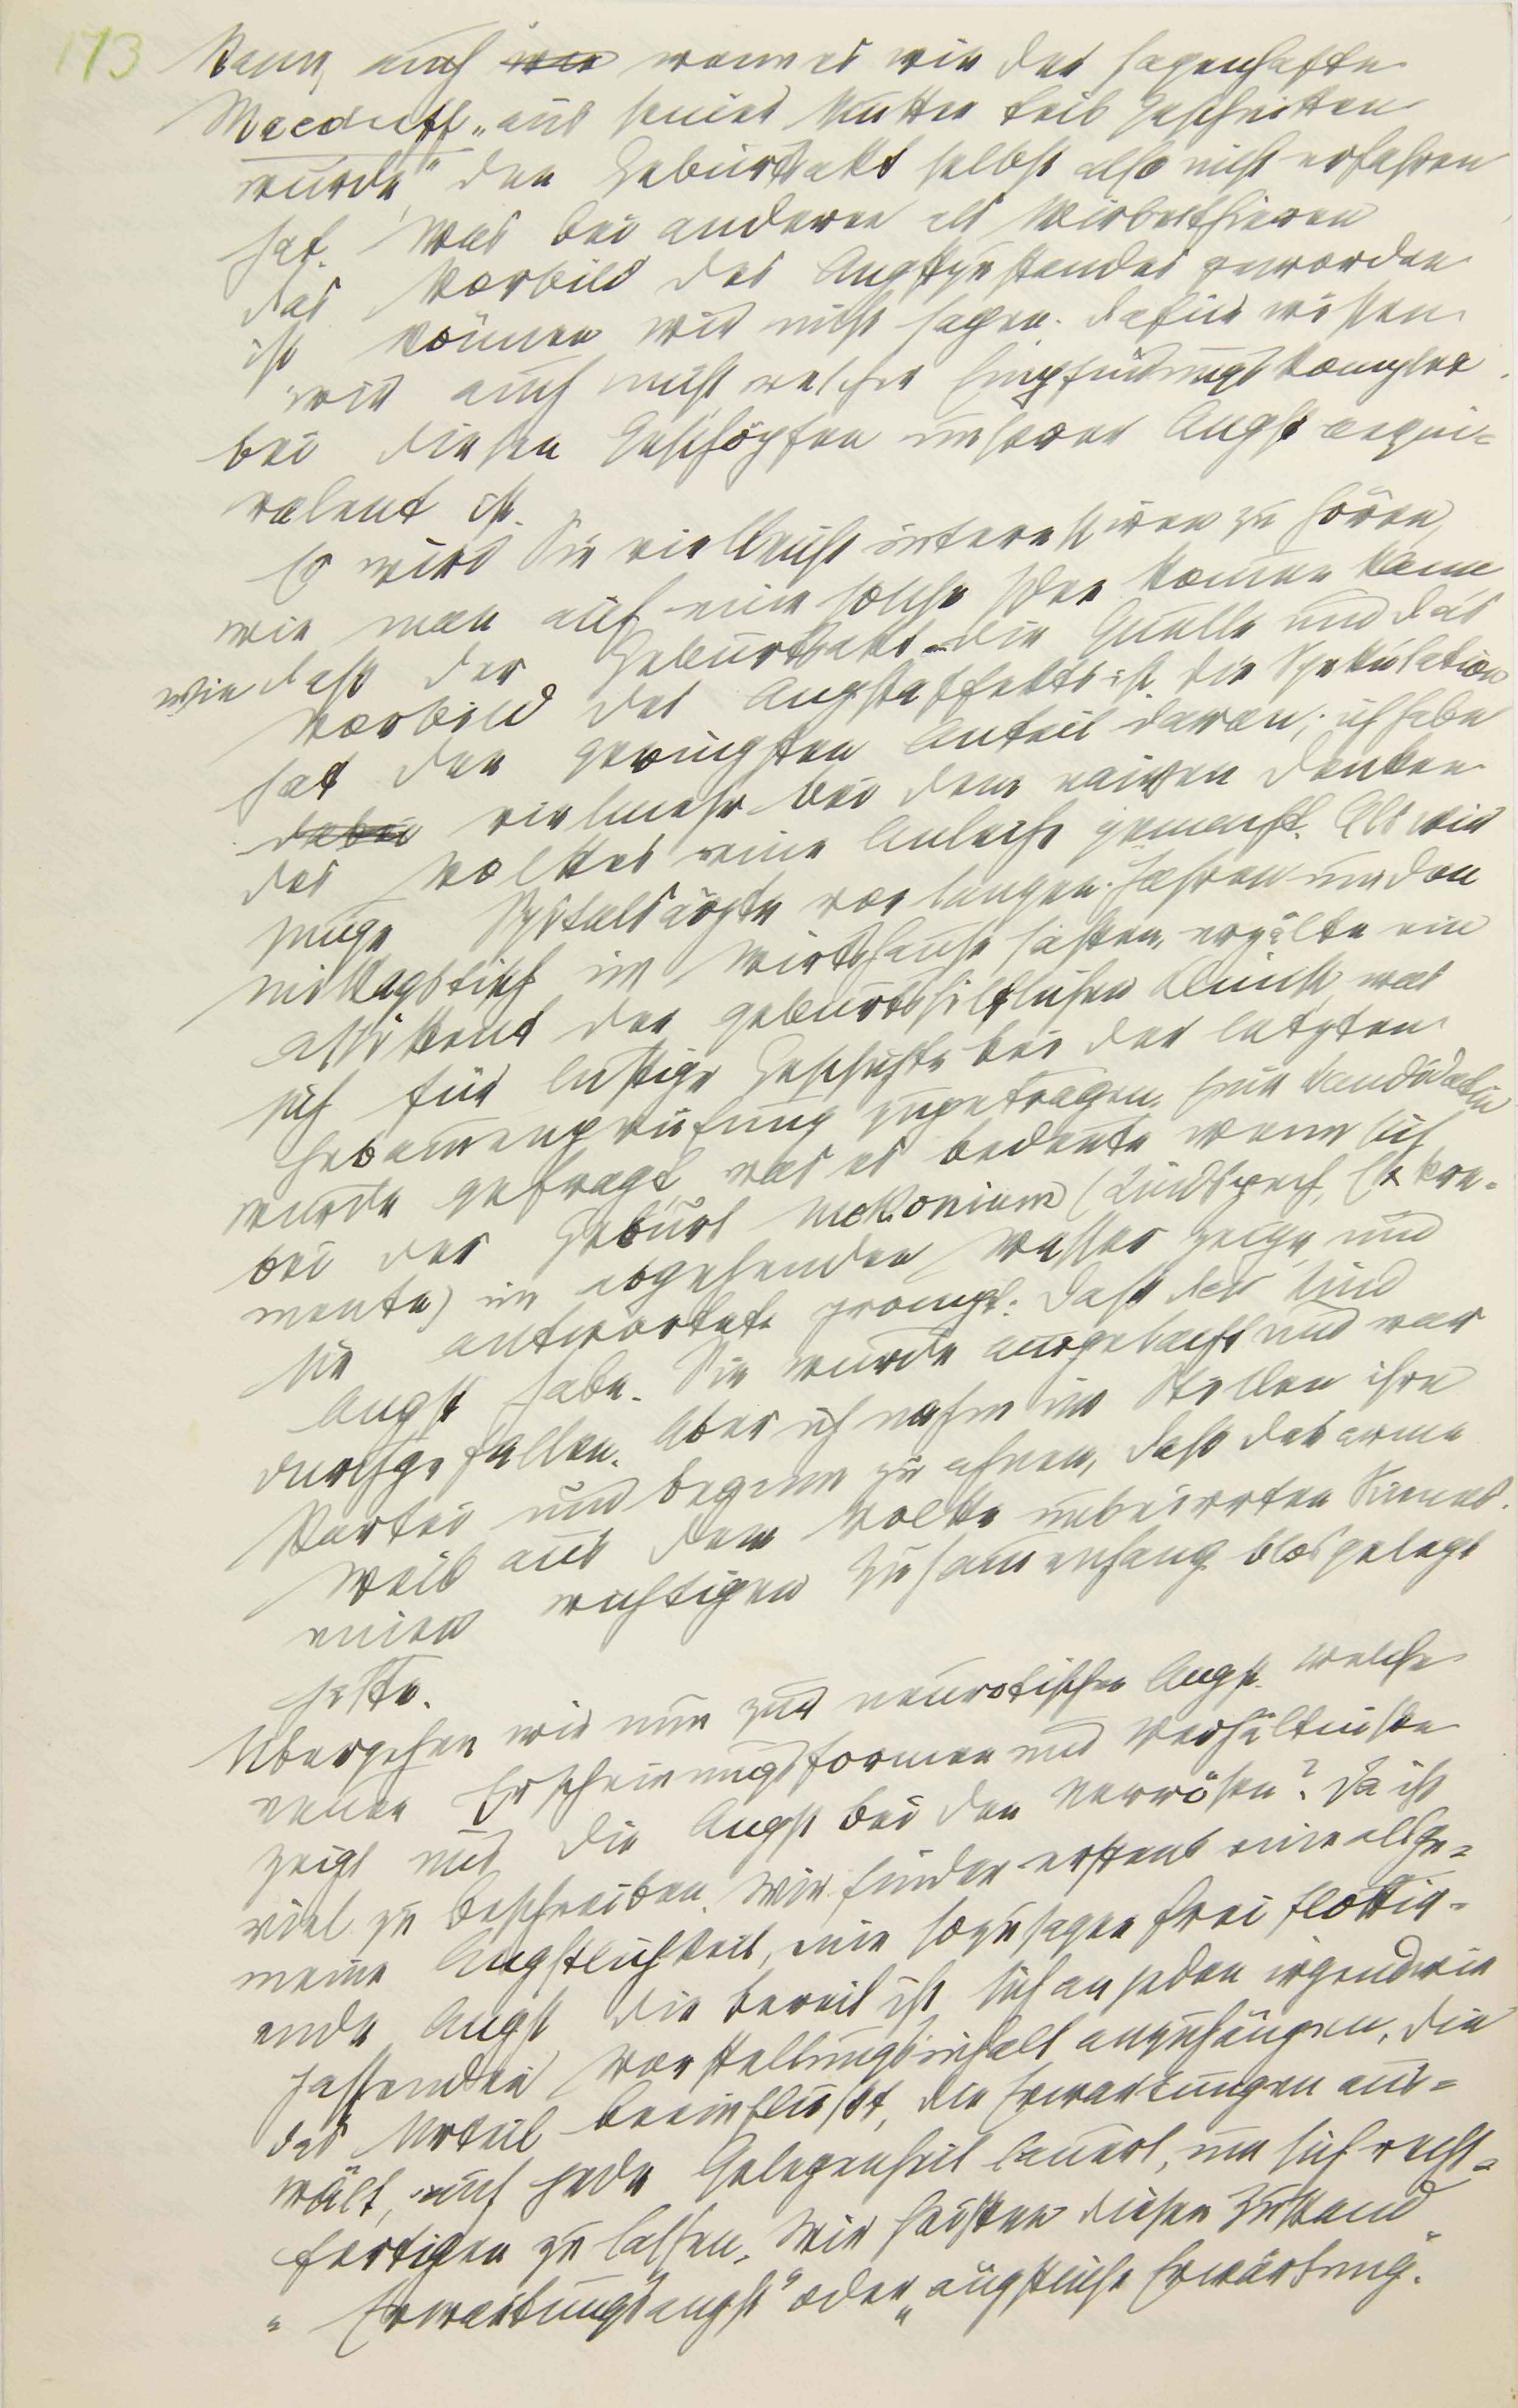 173
kann, auch wie wenn es wie der sagenhafte
Macduff „aus seiner Mutter Leib geschnitten
wurde“, den Geburtsakt selbst also nicht erfahren
hat. Was bei anderen als Wirbelthieren
das Vorbild des Angstzustandes geworden
ist können wir nicht sagen. Dafür wissen
wir auch nicht welcher Empfindungskomplex
bei diesen Geschöpfen unserer Angst aequi=
valent ist.
Es wird Sie vielleicht interessiren zu hören,
wie man auf eine solche Idee kommen kann
wie daß der Geburtsakt die Quelle und das
Vorbild des Angstaffekts ist. Die Spekulation
hat den geringsten Anteil daran; ich habe
dabei vielmehr bei dem naiven Denken
des Volkes eine Anleihe gemacht. Als wir
junge Spitalsärzte vor langen Jahren um den
Mittagstisch im Wirtshause saßen, erzälte ein
Assistent der geburtshilflichen Klinik, was
sich für lustige Geschichte bei der letzten
Hebammenprüfung zugetragen. Eine Kandidatin
wurde gefragt, was es bedeute wenn sich
bei der Geburt Mekonium (Kindspech, Exkre=
mente) im abgehenden Wasser zeige, und
sie antwortete prompt: Daß das Kind
Angst habe. Sie wurde ausgelacht und war
durchgefallen. Aber ich nahm im Stillen ihre
Partei und begann zu ahnen, daß das arme
Weib aus dem Volke unbeirrten Sinnes
einen wichtigen Zusammenhang blosgelegt
hatte.
Übergehen wir nun zur neurotischen Angst. Welche
neuen Erscheinungsformen und Verhältnisse
zeigt uns die Angst bei den Nervösen? Da ist
viel zu beschreiben. Wir finden erstens eine allge=
meine Ängstlichkeit, eine sozusagen frei flottir=
ende Angst die bereit ist sich an jeden irgendwie
passenden Vorstellungsinhalt anzuhängen, die
das Urteil beeinflußt, die Erwartungen aus=
wält, auf jede Gelegenheit lauert, um sich recht=
fertigen zu lassen. Wir heißen diesen Zustand
„Erwartungsangst“ oder „ängstliche Erwartung“.